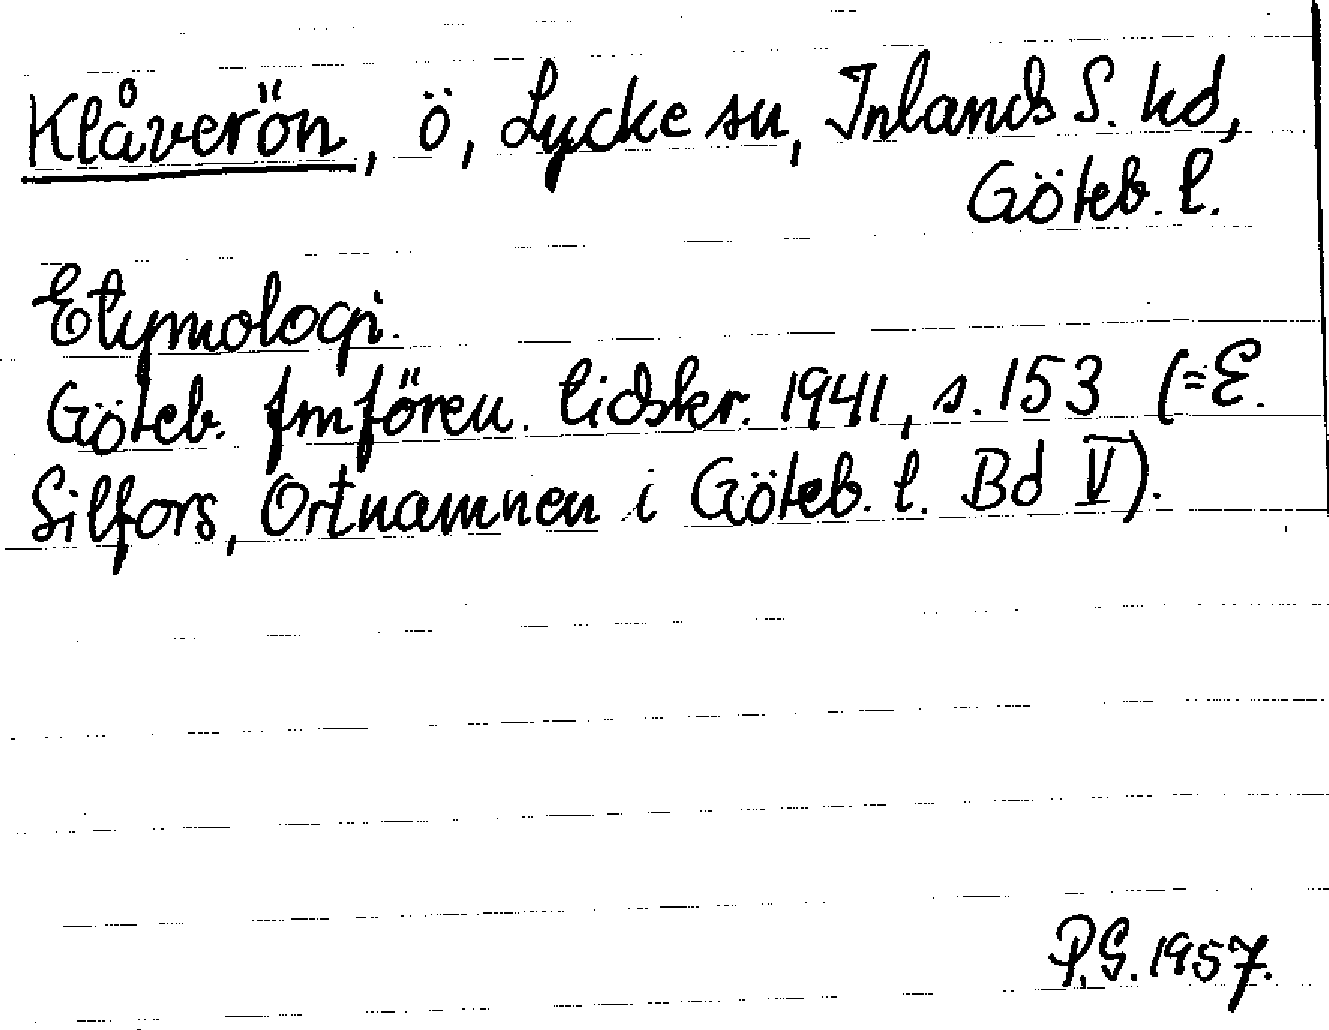 Klåverön, ö, Lycke sn, Inlands S. hd,
Göteb. l.
Etymologi.
Göteb. fmfören. tidskr. 1941, s. 153 (=E.
Silfors, Ortnamnen i Göteb. l. Bd V).
P.G. 1957.